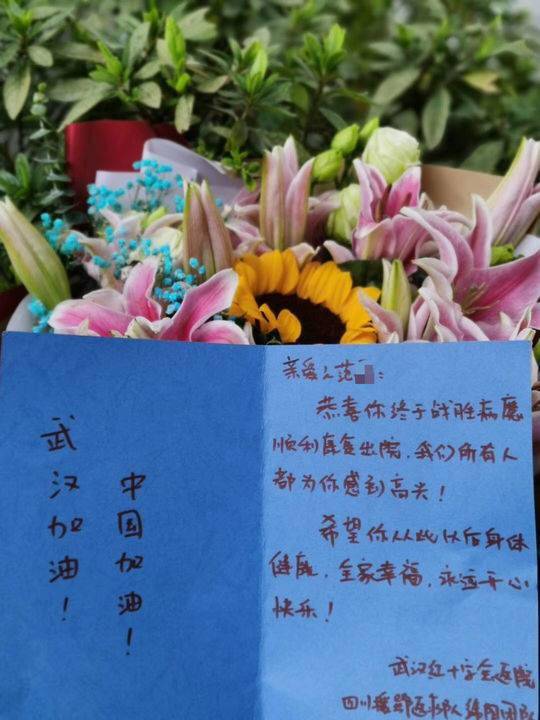 武汉加油！
中国加油！
亲爱之范：
恭喜你终于战胜病魔
顺利康复出院，我们所有人
都为你感到高兴！
希望你从此以后身体
健康，全家幸福，永远开心
快乐！
武汉红十字会医院
四川援鄂医疗队团队